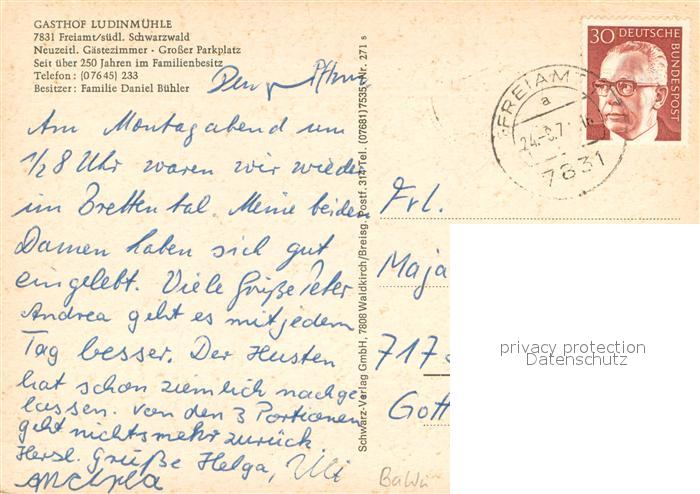 GASTHOF LUDINMÜHLE
7831 Freiamt/südl. Schwarzwald
Neuzeitl. Gästezimmer · Großer Parkplatz
Seit über 250 Jahren im Familienbesitz
Telefon: (07645) 233
Besitzer: Familie Daniel Bühler
Am Montagabend um
1/2 8 Uhr waren wir wieder
im Brettental. Meine beiden
Damen haben sich gut
eingelebt. Viele Grüße Peter
Andrea geht es mit jedem
Tag besser. Der Husten
hat schon ziemlich nachge
lassen. von den 3 Portionen
geht nichts mehr zurück
Herzl. Grüße Helga, Uli
Schwarz-Verlag GmbH, 7808 Waldkirch/Breisg. Postf. 314 Tel. (07681) 7535 Nr. 271 s
30 DEUTSCHE BUNDESPOST
FREIAMT
a
7831
Frl.
Maja
717
Gott
BaWü
privacy protection
Datenschutz